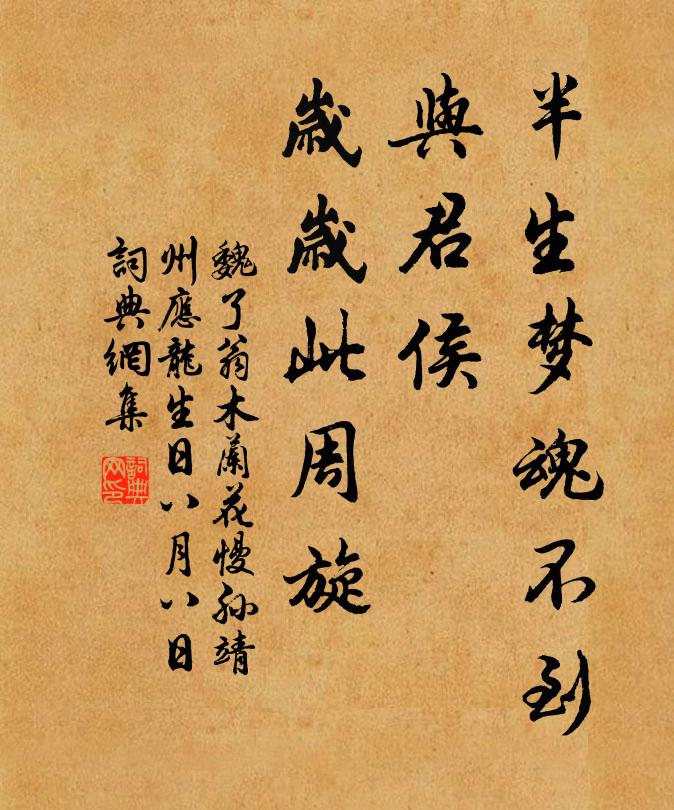 半生梦魂不到
與君侯
歲歲此周旋
魏了翁木蘭花慢孙靖
州應龍生日八月八日
詞典網集
詞典
网印